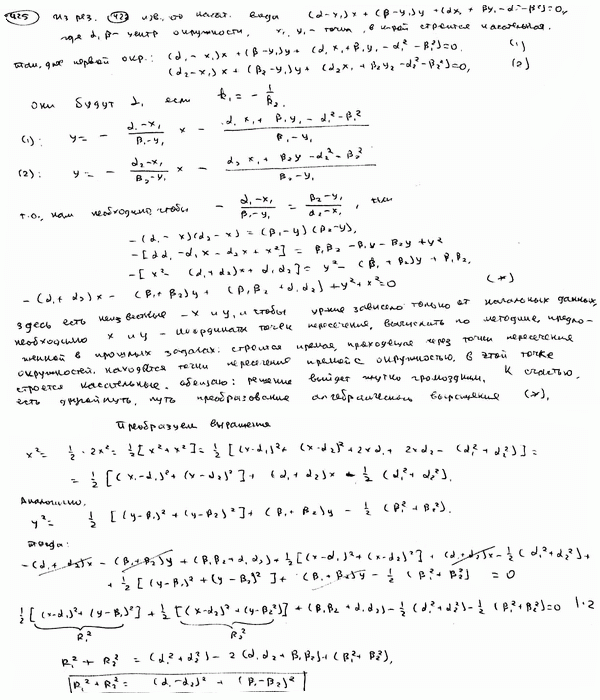 425 Из рез. 422 изв. ур. касат. вида (α-x₁)x + (β-y₁)y + (αx₁ + βy₁-α²-β²)=0,
где α, β - центр окружности, x₁ y₁ - точка, в к-рой строится касательная.
тогда, для первой окр.: (α₁-x₁)x + (β₁-y₁)y + (α₁x₁+β₁y₁-α₁²-β₁²)=0. (1)
(α₂-x₁)x + (β₂-y₁)y + (α₂x₁+β₂y₂-α₂²-β₂²)=0, (2)
они будут ⊥, если k₁ = - 1/k₂.
(1): y = - (α₁-x₁)/(β₁-y₁) x - (α₁x₁+β₁y₁-α₁²-β₁²)/(β₁-y₁)
(2): y = - (α₂-x₁)/(β₂-y₁) x - (α₂x₁+β₂y-α₂²-β₂²)/(β₂-y₁)
т.о., нам необходимо, чтобы - (α₁-x₁)/(β₁-y₁) = (β₂-y₁)/(α₂-x₁), или
-(α₁-x)(α₂-x) = (β₁-y)(β₂-y),
-[αα₂-α₁x-α₂x+x²] = β₁β₂-β₁y-β₂y+y²
-[x²-(α₁+α₂)x+α₁α₂] = y²-(β₁+β₂)y+β₁β₂,
-(α₁+α₂)x - (β₁+β₂)y + (β₁β₂+α₁α₂)+y²+x²=0 (*)
здесь есть неизвестные - x и y, и чтобы ур-ние зависело только от начальных данных
необходимо x и y - координаты точки пересечения, вычислить по методике, предло-
женной в прошлых задачах: строится прямая, проходящая через точки пересечения
окружностей, находятся точки пересечения прямой с окружностью, в этой точке
строятся касательные. обещаю: решение выйдет жутко громоздким. К счастью,
есть другой путь, путь преобразование алгебраическ выражения (*),
Преобразуем выражения
x² = 1/2·2x² = 1/2[x²+x²] = 1/2[(x-α₁)²+(x-α₂)²+2xα₁+2xα₂-(α₁²+α₂²)] =
= 1/2[(x-α₁)²+(x-α₂)²]+(α₁+α₂)x - 1/2(α₁²+α₂²).
Аналогично,
y² = 1/2[(y-β₁)²+(y-β₂)²]+(β₁+β₂)y - 1/2(β₁²+β₂²).
тогда:
-(α₁+α₂)x - (β₁+β₂)y + (β₁β₂+α₁α₂)+1/2[(x-α₁)²+(x-α₂)²]+(α₁+α₂)x-1/2(α₁²+α₂²)+
+1/2[(y-β₁)²+(y-β₂)²]+(β₁+β₂)y - 1/2(β₁²+β₂²) =0
1/2[(x-α₁)²+(y-β₁)²]+1/2[(x-α₂)²+(y-β₂)²]+(β₁β₂+α₁α₂)-1/2(α₁²+α₂²)-1/2(β₁²+β₂²)=0 |·2
R₁² R₂²
R₁²+R₂² = (α₁²+α₂²)-2(α₁α₂+β₁β₂)+(β₁²+β₂²),
R₁²+R₂² = (α₁-α₂)²+(β₁-β₂)²